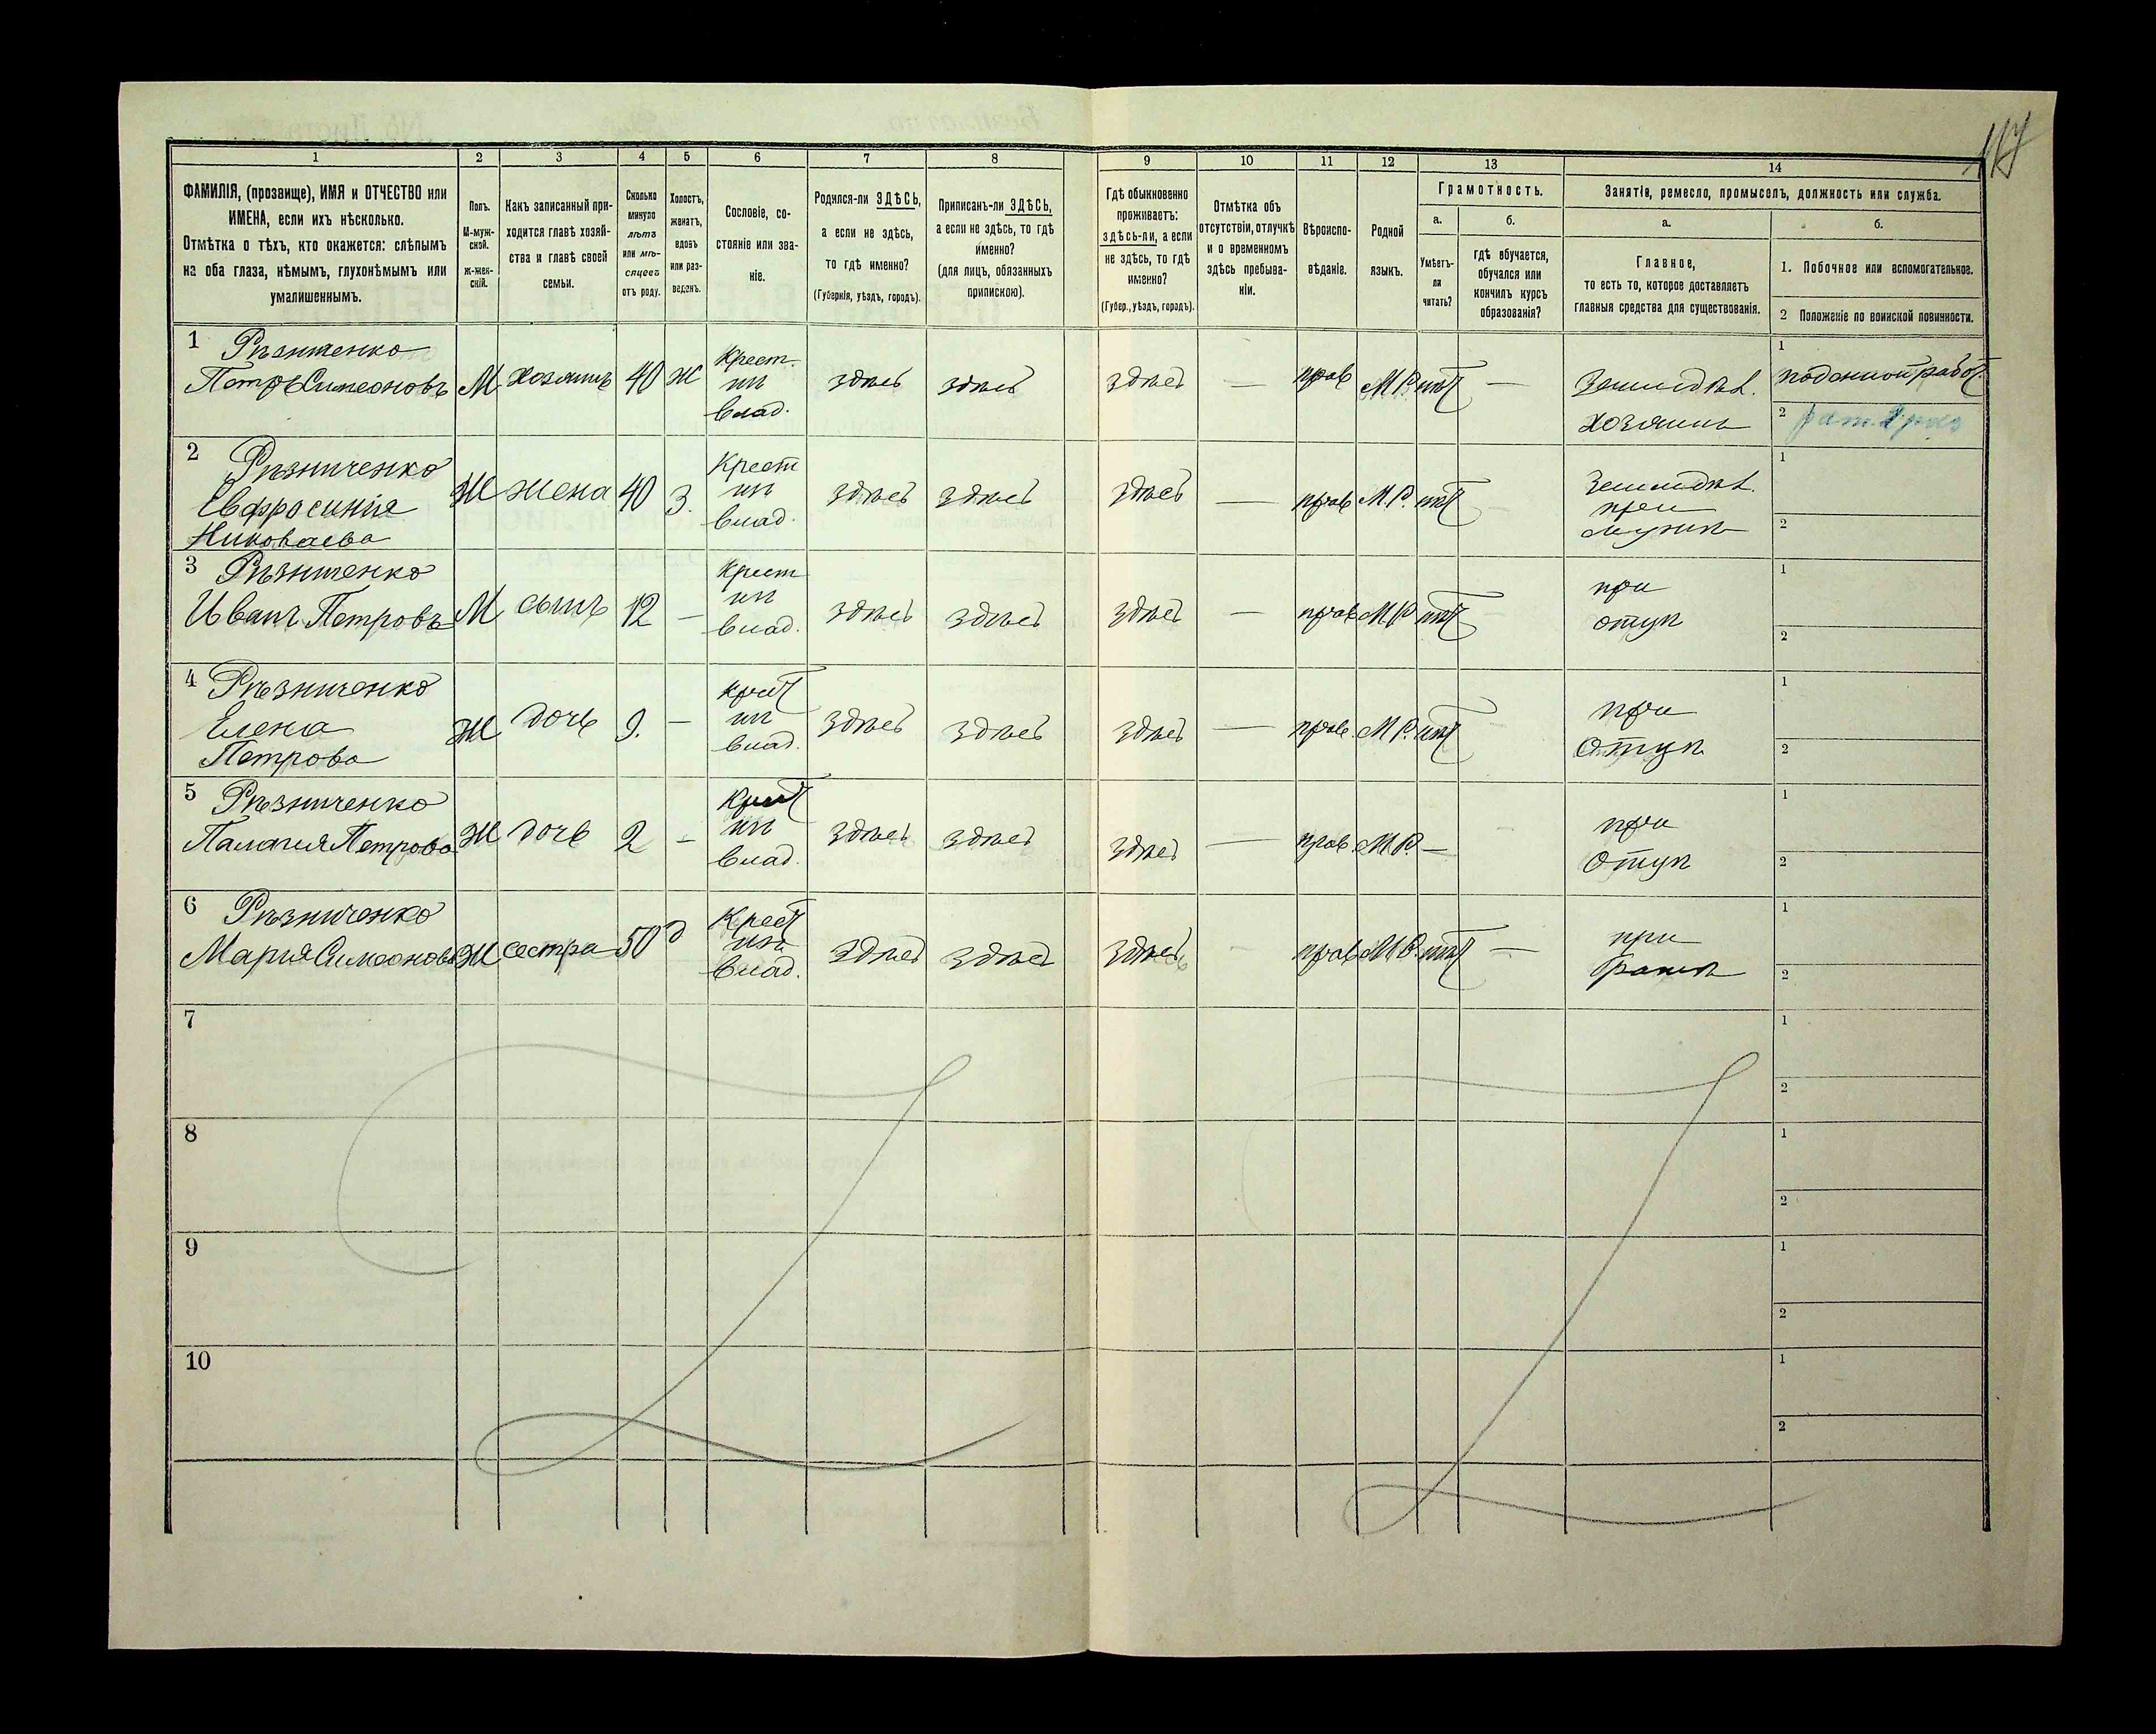 117
1 2 3 4 5 6 7 8 9 10 11 12 13 14
ФАМИЛІЯ, (прозвище), ИМЯ и ОТЧЕСТВО или
ИМЕНА, если ихъ нѣсколько.
Отмѣтка о тѣхъ, кто окажется: слѣпымъ
на оба глаза, нѣмымъ, глухонѣмымъ или
умалишеннымъ.
Полъ.
М-муж-
ской.
ж-жен-
скій.
Какъ записанный при-
ходится главѣ хозяй-
ства и главѣ своей
семьи.
Сколько
минуло
лѣтъ
или мѣ-
сяцевъ
отъ роду.
Холостъ,
женатъ,
вдовъ
или раз-
веденъ.
Сословіе, со-
стояніе или зва-
ніе.
Родился-ли ЗДѢСЬ,
а если не здѣсь,
то гдѣ именно?
(Губернія, уѣздъ, городъ).
Приписанъ-ли ЗДѢСЬ,
а если не здѣсь, то гдѣ
именно?
(для лицъ, обязанныхъ
припискою).
Гдѣ обыкновенно
проживаетъ:
здѣсь-ли, а если
не здѣсь, то гдѣ
именно?
(Губер., уѣздъ, городъ).
Отмѣтка объ
отсутствіи, отлучкѣ
и о временномъ
здѣсь пребыва-
ніи.
Вѣроиспо-
вѣданіе.
Родной
языкъ.
Грамотность.
а.
Умѣетъ-
ли
читать?
б.
гдѣ обучается,
обучался или
кончилъ курсъ
образованія?
Занятіе, ремесло, промыселъ, должность или служба.
а.
Главное,
то есть то, которое доставляетъ
главныя средства для существованія.
б.
1. Побочное или вспомогательное.
2 Положеніе по воинской повинности.
1 Рѣзниченко
Петръ Симеоновъ М хозяинъ 40 ж
Крест.
изъ
влад.
здѣсь здѣсь здѣсь — прав М.Р. нѣт —
Земледѣл.
Хозяинъ
1 поденной работ.
2
2 Рѣзниченко
Евфросинія
Николаева
Ж жена 40 з.
Крест
изъ
влад.
здѣсь здѣсь здѣсь — прав М.Р. нѣт -
Земледѣл.
при
мужѣ
1
2
3 Рѣзниченко
Иванъ Петровъ М сынъ 12 —
Крест
изъ
влад.
здѣсь здѣсь здѣсь — прав М.Р. нѣт -
при
отцѣ
1
2
4 Рѣзниченко
Елена
Петрова
Ж дочь 9. —
крест
изъ
влад.
здѣсь здѣсь здѣсь — прав. М.Р. нѣт -
при
Отцѣ
1
2
5 Рѣзниченко
Палагия Петрова Ж дочь 2 -
Крест
изъ
влад.
здѣсь здѣсь здѣсь — прав М.Р. — -
при
Отцѣ
1
2
6 Рѣзниченко
Мария Симеонова Ж сестра 50 д
Крест
изъ
влад.
здѣсь здѣсь здѣсь - прав М.Р. нѣт —
при
братѣ
1
2
7
1
2
8
1
2
9
1
2
10
1
2